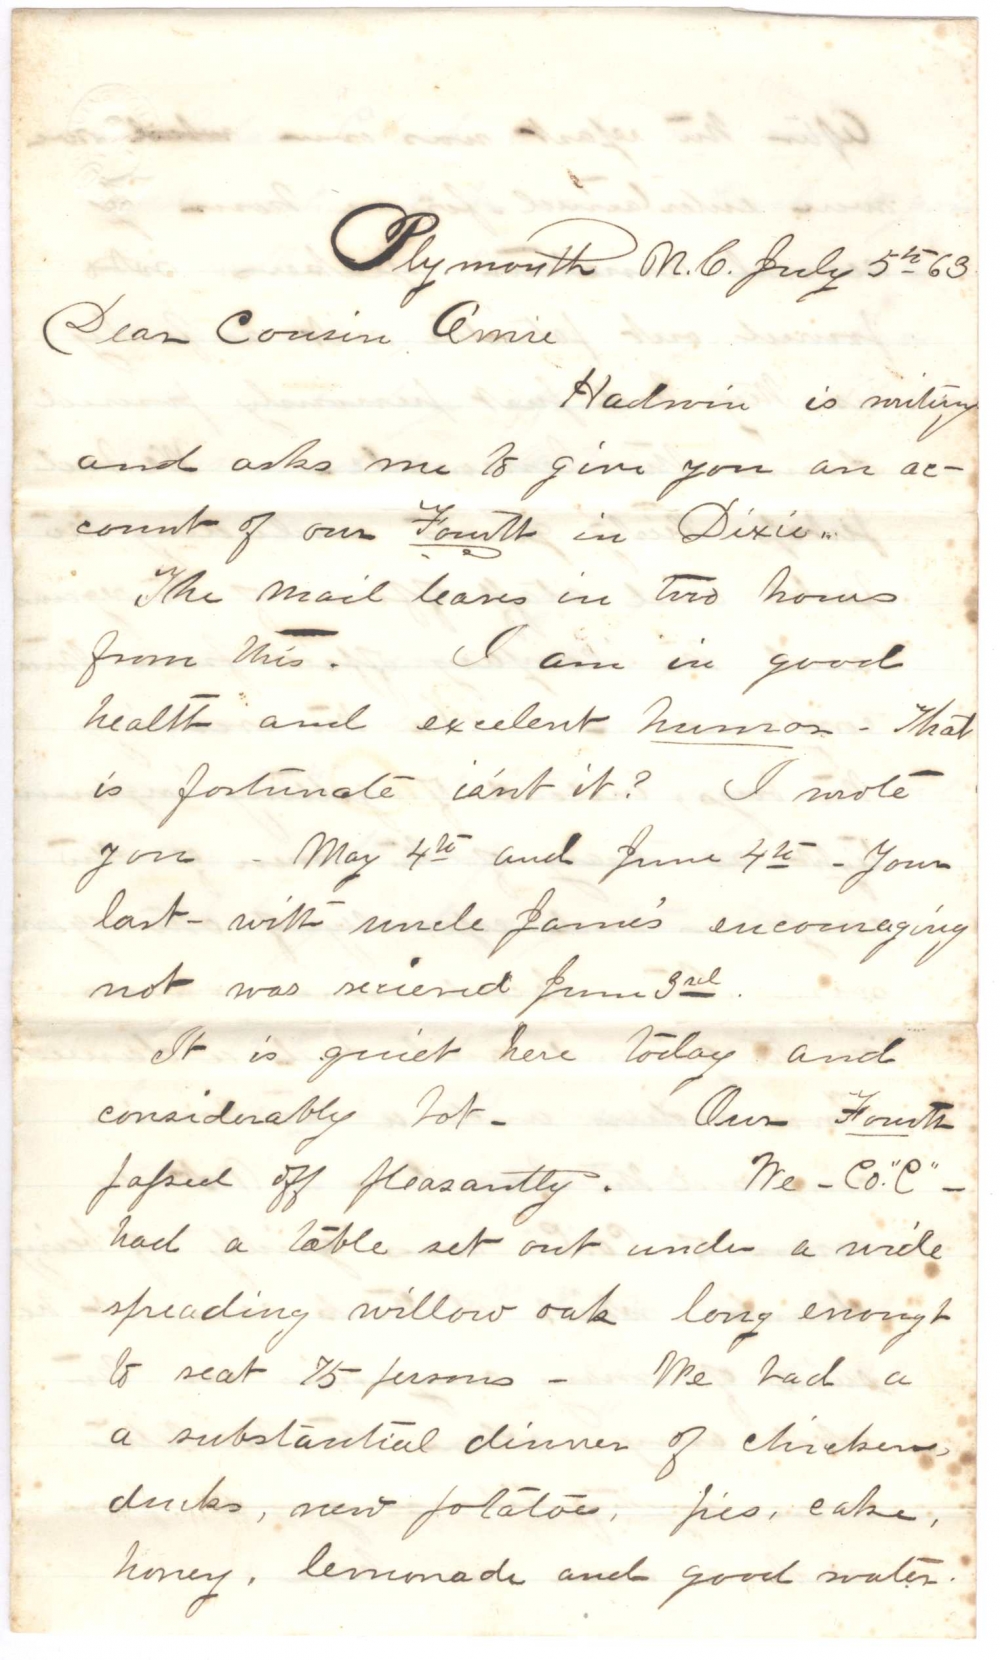 Plymouth N.C. July 5th 63
Dear Cousin Amie
Hadwin is writing
and asks me to give you an ac-
count of our Fourth in Dixie.
The mail leaves in two hours
from this. I am in good
health and excelent humor - That
is fortunate is'nt it? I wrote
you - May 4th and June 4th - Your
last - with uncle Jame's encouraging
not was recieved June 3rd.
It is quiet here today and
considerably hot - Our Fourth
passed off pleasantly. We - Co. "C" -
had a table set out under a wide
spreading willow oak long enough
to seat 75 persons - We had a
a substantial dinner of chickens,
ducks, new potatoes, pies, cake,
honey, lemonade and good water.